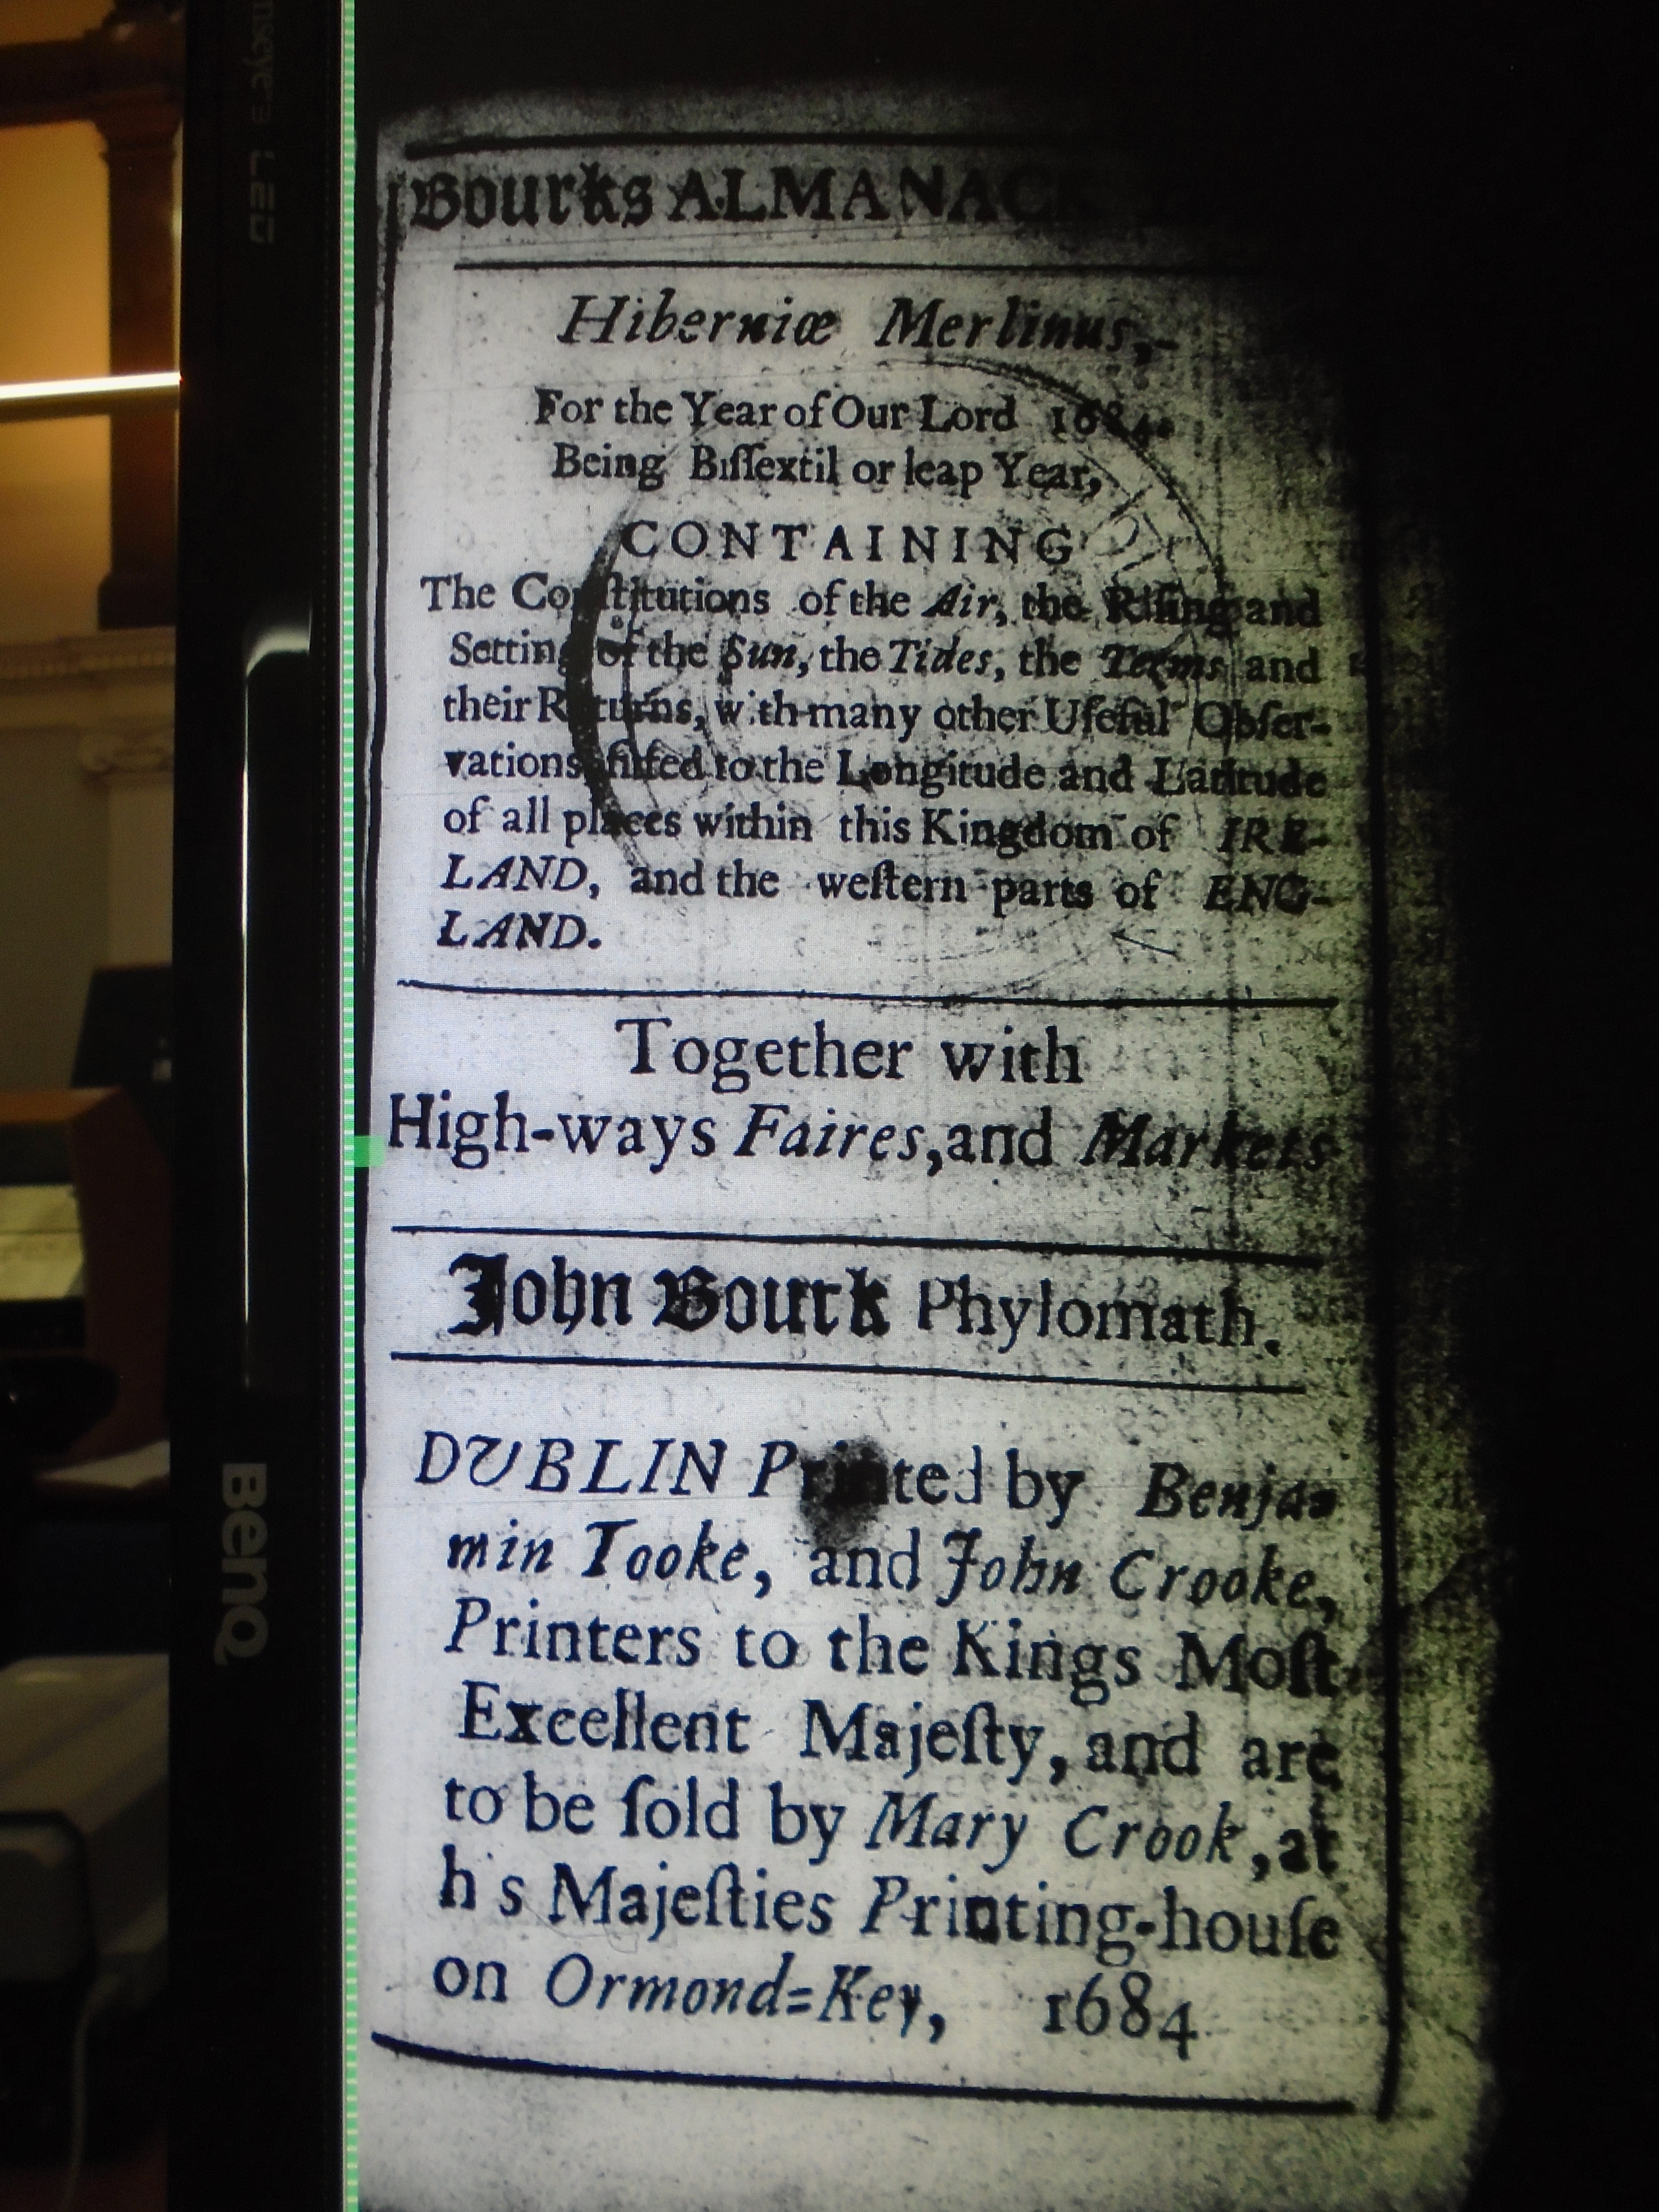 Bourks ALMANACK
Hiberniæ Merlinus,
For the Year of Our Lord 1684.
Being Biſſextil or leap Year,
CONTAINING
The Conſtitutions of the Air, the Riſing and
Setting of the Sun, the Tides, the Terms and
their Returns, with many other Uſeful Obſer-
vations fitted to the Longitude and Latitude
of all places within this Kingdom of IRE-
LAND, and the weſtern parts of ENG-
LAND.
Together with
High-ways Faires, and Markets
John Bourk Phylomath.
DUBLIN Printed by Benja-
min Tooke, and John Crooke,
Printers to the Kings Moſt
Excellent Majeſty, and are
to be ſold by Mary Crook, at
h s Majeſties Printing-houſe
on Ormond=Key, 1684
BenQ
senseye 3 LED